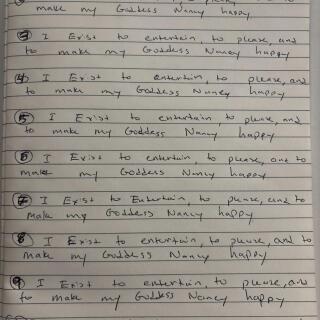 make my Goddess Nancy happy
③ I Exist to entertain, to please, and
to make my Goddess Nancy happy
④ I Exist to entertain, to please, and
to make my Goddess Nancy happy
⑤ I Exist to entertain, to please, and
to make my Goddess Nancy happy
⑥ I Exist to entertain, to please, and to
make my Goddess Nancy happy
⑦ I Exist to Entertain, to please, and to
make my Goddess Nancy happy
⑧ I Exist to entertain, to please, and to
make my Goddess Nancy happy
⑨ I Exist to entertain, to please, and
to make my Goddess Nancy happy